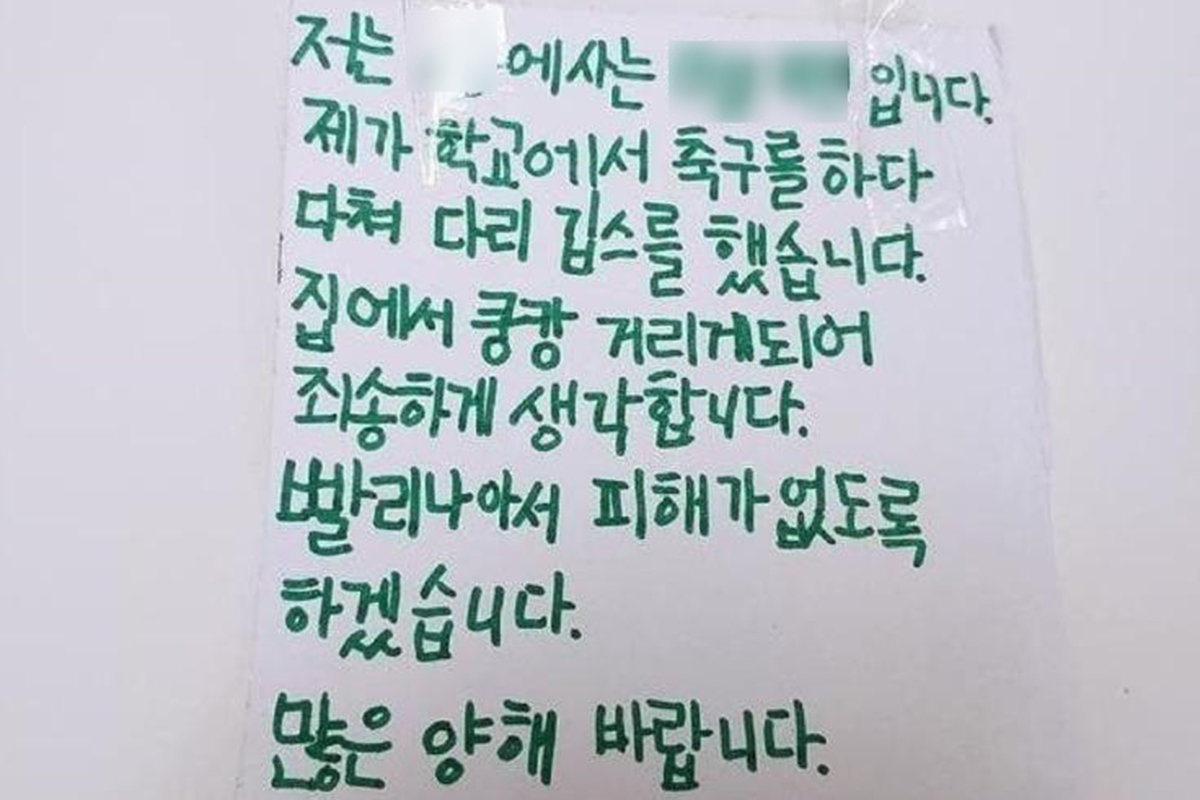 저는 에사는 입니다.
제가 학교에서 축구를 하다
다쳐 다리 깁스를 했습니다.
집에서 쿵캉 거리게되어
죄송하게 생각합니다.
빨리나아서 피해가 없도록
하겠습니다.
많은 양해 바랍니다.